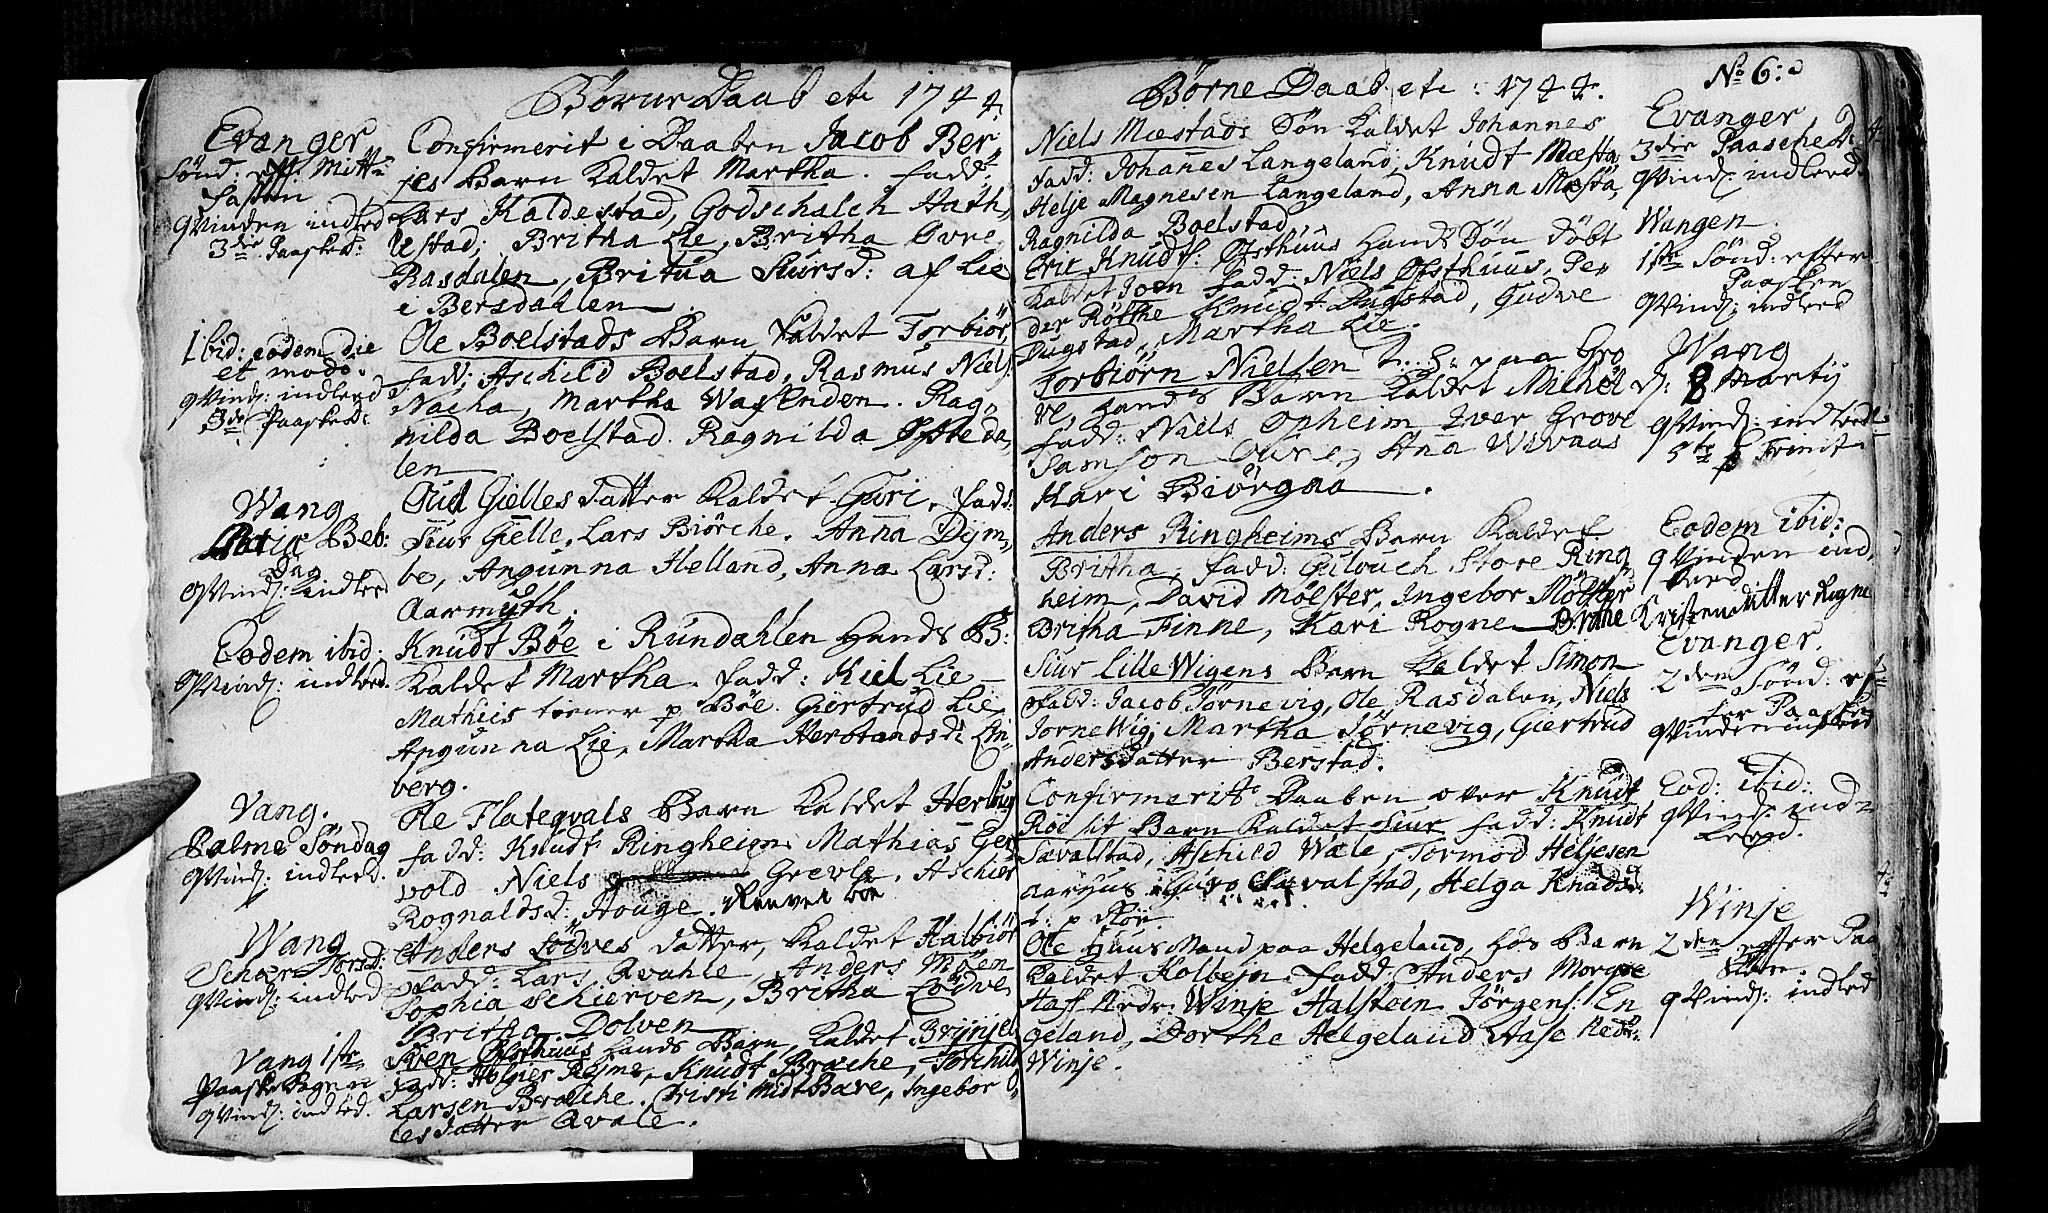 Børne Daab etc 1744.
Evanger
Sønd: eff. Mitt
fasten
qvinden indled
3die Paasked:
Confirmerit i Daaben Jacob Ber,
jes Barn kaldet Martha. fadd:
Lars Kaldestad, Godschalch Hath,
Ustad; Britha Lie, Britha Øvre
Rasdalen, Britha Siursd: af Lie
i Bersdahlen
Ibid: eodem die
et modo.
qvind: indleed
3de Paasked:
Ole Boelstads Barn kaldet Torbiør,
fadd: Aschild Boelstad, Rasmus Niels:
Nacha, Martha Wassenden. Rag,
nilda Boelstad. Ragnilda Øfsteda
len
Wang
Mariæ Beb:
Dag
qvind: indleed
Oud Gielles datter kaldet Guri. fadd:
Siur Gielle, Lars Biørche. Anna Dÿm,
be, Angunna Helland, Anna Larsd:
Aarmyth.
Eodem ibid:
qvind: indleed.
Knudt Bøe i Rundahlen Hands B:
kaldet Martha. fadd: Kiel Lie
Mathiis tiener p Bøe. Giertrud Lie
Angunna Lie, Martha Herbrandsd: Lin,
berg.
Vang.
Palme Søndag
qvind: indleed.
Ole Flateqvals Barn kaldet Herbiug
fadd: Knudt Ringheim Mathias Gier
vold Niels Grevle. Aschier
Rognaldsd: Houge.
Wang
Schær Torsd:
qvind: indled
Anders Lødves datter, kaldet Halbiør
fadd: Lars Qvahle, Anders Møen
Sophia Schierven, Britha Lødve
Britha Dolven
Vang 1ste
Paaske Dag
qvind: indled.
Sven Øfsthuus hands Barn, kaldet Brÿnjel
fadd: Holgier Rogne, Knudt Brache, Torchild
Larsen Brache. Christi Midt Bare, Ingebor O,
lesdatter Qvale.
Børne Daab etc: 1744.
No 6:
Niels Mæstads Søn kaldet Johannes
fadd: Johanes Langeland, Knudt Mæsta,
Helje Magnesen Langeland, Anna Mæsta,
Ragnilda Boelstad
Evanger
3die Paasche D:
qvind: indleed.
Eric Knuds: Øfsthuus Hands Søn døbt
kaldet Joen fadd: Niels Øfsthuus, Pe,
der Røthe Knudt Dugstad, Gudve
Dugstad, Martha Lie.
Wangen
1ste Sønd: efter
Paasken
qvind: indleed
Torbiørn Nielsen paa Gro
ve, Hands Barn kaldet Michel
fadd: Niels Opheim Iver Grove
Samson Anna Wivaas
Kari Biørgaa.
Wang
d: 8 Martij
qvind: indleed
Trinit
Anders Ringheims Barn kaldet
Britha, fadd: Gulvuch Store Ring,
heim, David Mølster, Ingebor Mølster
Britha Finne, Kari Rogne Kristendatter Rogne
Eodem ibid:
qvinden ind,
leed
Siur Lille Wigens Barn kaldet Simon
fadd: Jacob Jørnevig, Ole Rasdalen, Niels
Jornewig; Martha Jørnevig, Giertrud
Andersdatter Berstad.
Evanger.
2den Sønd: ef
ter Paasken
qvinden indleed
Confirmerit Daaben over Knudt
Røe sit Barn kaldet Siur fadd: Knudt
Sævalstad, Aschild Wæle, Tormod Heljesen
Aarhus Guro Sævalstad, Helga Knudsd:
t: p Røe
Eod: ibid:
qvind: ind=
leed.
Ole Huusmand paa Helgeland, hds Barn
kaldet Kolbejn. fadd: Anders Morque
Haff Nedr: Winje Halstein Jørgens: En
geland, Dorthe Helgeland Aase Nedr:
Winje.
Winje
2den efter Paa
sken.
qvind: indled